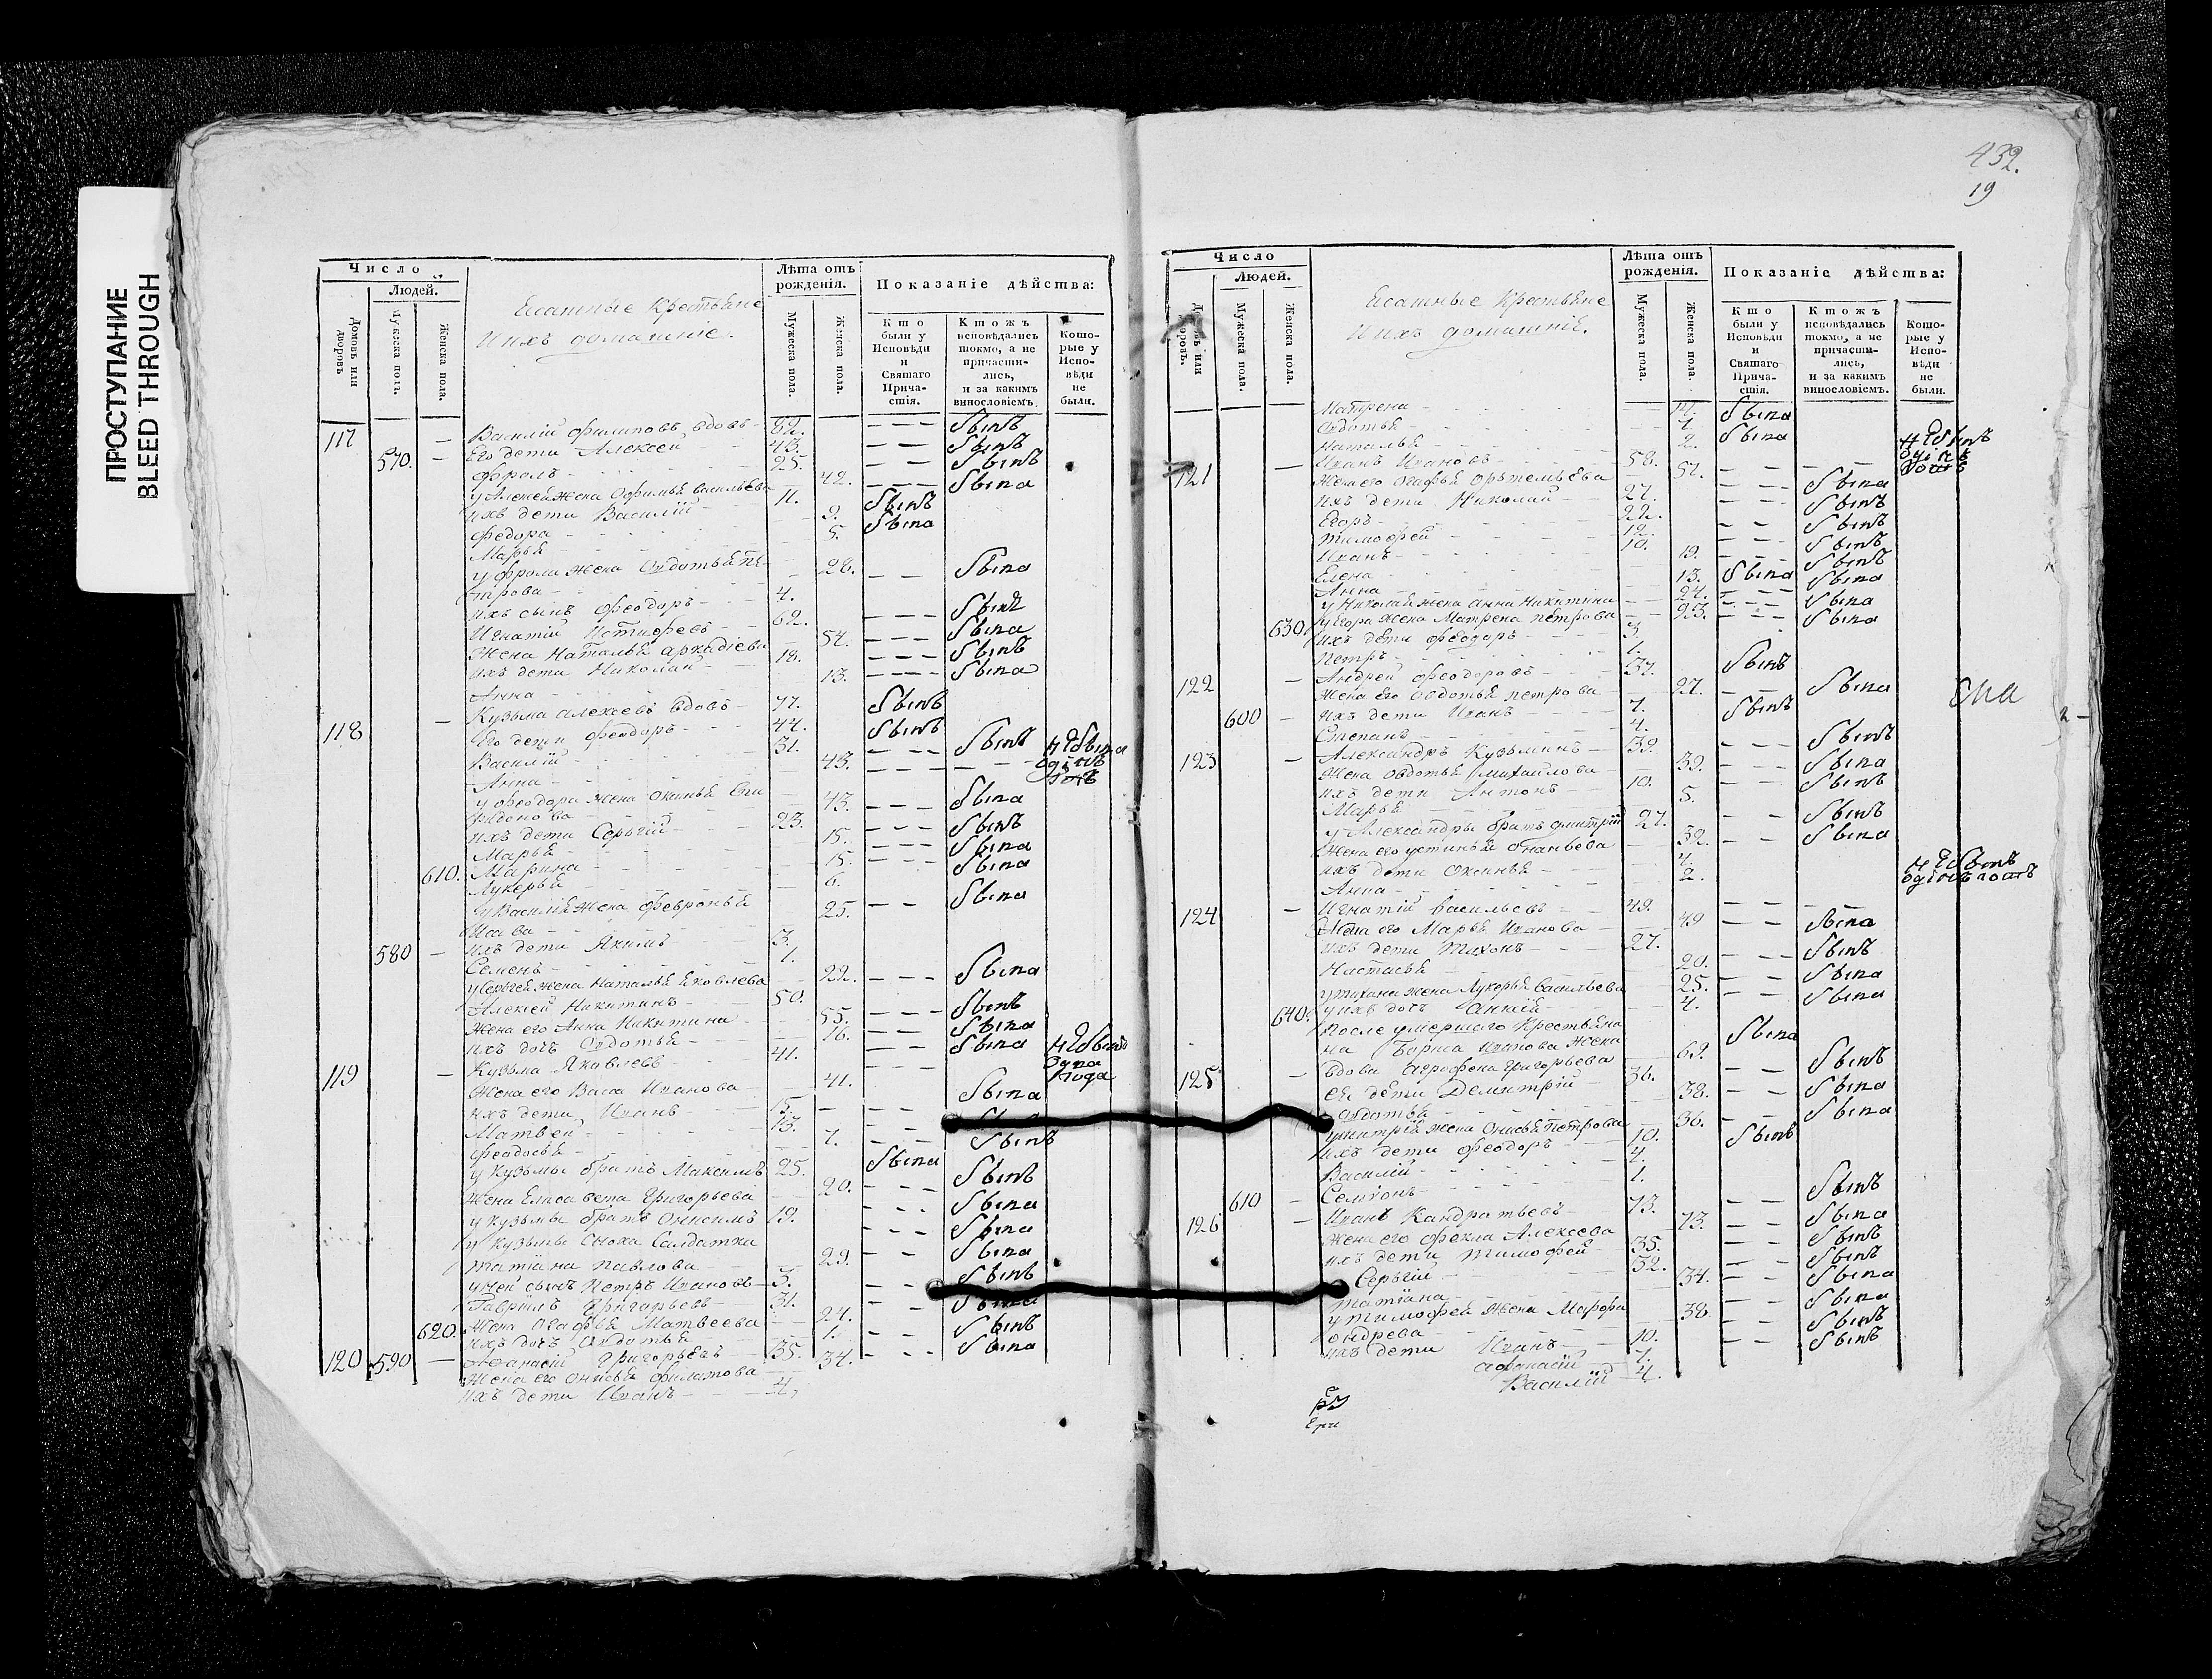 ПРОСТУПАНИЕ
BLEED THROUGH
Число
Людей.
Домовъ или дворовъ
Мужеска пола.
Женска пола.
Ясашные Крестьяне
и ихъ домашние.
Лѣта отъ рождения.
Мужеска пола.
Женска пола.
Показаніе дѣйства:
Кто были у Исповѣди и Святаго Причастія.
Ктожъ исповѣдались токмо, а не причастились, и за какимъ винословіемъ.
Которые у Исповѣди не были.
117 Василій Филиповъ вдовъ 82. былъ
570. Его дети Алексей 43. былъ
Фролъ 25. былъ
у Алексея жена Офимья Васильева 42. была
ихъ дети Василий 11. былъ
Федора 9. была
Марья 5.
у Фрола жена Овдотья Пе-
трова 28. была
ихъ сынъ Феодоръ 4.
Игнатій 62. былъ
Жена Наталья Аркадіева 54. была
ихъ дети Николай 18. былъ
Анна 13. была
118 Кузьма Алексеевъ вдовъ 77. былъ
Его дети Феодоръ 44. былъ
Василій 31. былъ
Анна 43.
у Феодора жена Оксинья Спи-
ридонова 43. была
ихъ дети Сергій 23. былъ
Марья 15. была
610. Марина 15. была
Лукерья 6.
у Василья жена Февронья
25. была
580 ихъ дети Якимъ 3.
Семенъ 1.
у Сергея жена Наталья Яковлева 22. была
Алексей Никитинъ 50. былъ
Жена его Анна Никитина 55. была
ихъ дочь Овдотья 16. была
119 Кузьма Яковлевъ 41.
Жена его Васа Иванова 41. была
ихъ дети Иванъ 15.
Матвей 13. былъ
Феодосья 7. была
у Кузьмы братъ Максимъ 25. былъ
Жена Елисавета Григорьева 20. была
у Кузьмы братъ Онисимъ 19.
у Кузьмы сноха Салдатка
Татіана Павлова 29. была
у ней сынъ Петръ Ивановъ 3.
Гаврилъ Григорьевъ 31. былъ
620. Жена Огафья Матвеева 24.
ихъ дочь Овдотья 1.
120 590 Афанасій Григорьевъ 35. былъ
Жена его Онисья Филатова 34. была
ихъ дети Иванъ 4.
432.
19
Число
Людей.
Мужеска пола.
Женска пола.
Ясашные Крестьяне
и ихъ домашніе.
Лѣта отъ рожденія.
Мужеска пола.
Женска пола.
Показаніе дѣйства:
Кто были у Исповѣди и Святаго Причастія.
Ктожъ исповѣдались токмо, а не причастились, и за какимъ винословіемъ.
Которые у Исповѣди не были.
Матрена 14. была
Овдотья 4. была
Наталья 2.
121 Иванъ Ивановъ 58.
Жена его Огафья Ортемьева 52. была
ихъ дети Николай 27. былъ
Егоръ 22. былъ
Тимофей 12. былъ
Иванъ 10. былъ
Елена 19. была
Анна 13. была
у Николая жена Анна Никитина 24. была
630. у Егора жена Матрена Петрова 23. была
ихъ дети Феодоръ 3.
Петръ 1.
122 Андрей Феодоровъ 37. былъ
Жена его Овдотья Петрова 27. была
600 ихъ дети Иванъ 7. былъ
Степанъ 4.
123 Александръ Кузьминъ 39. былъ
Жена Овдотья Михайлова 39. была
ихъ дети Антонъ 10. былъ
Марья 5.
у Александры братъ Дмитрій 27. былъ
Жена его Устинья Онаньева 32. была
ихъ дети Оксинья 4.
Анна 2.
124 Игнатій Васильевъ 49.
Жена его Марья Иванова 49 была
ихъ дети Тихонъ 27. былъ
Настасья 20. была
у Тихана жена Лукерья Васильева 25. была
640. у ихъ дочь 4.
После умершаго Крестьяни-
на Бориса Иванова жена
125 вдова Агрофена Григорьева 69. была
Ея дети Демитрій 36. былъ
Овдотья 38. была
у митрія жена Онисья Петрова 36. была
ихъ дети Феодоръ 10. былъ
Василій 4.
610 1.
126 Иванъ Кандратьевъ 73. былъ
Жена его Фекла Алексеева 73. была
ихъ дети Тимофей 35. былъ
Сергій 32. былъ
Татіана 34. была
у Тимофея жена Марфа
Ондрева 38. была
ихъ дети Иванъ 10. былъ
Афонасій 7. былъ
Василій 4.